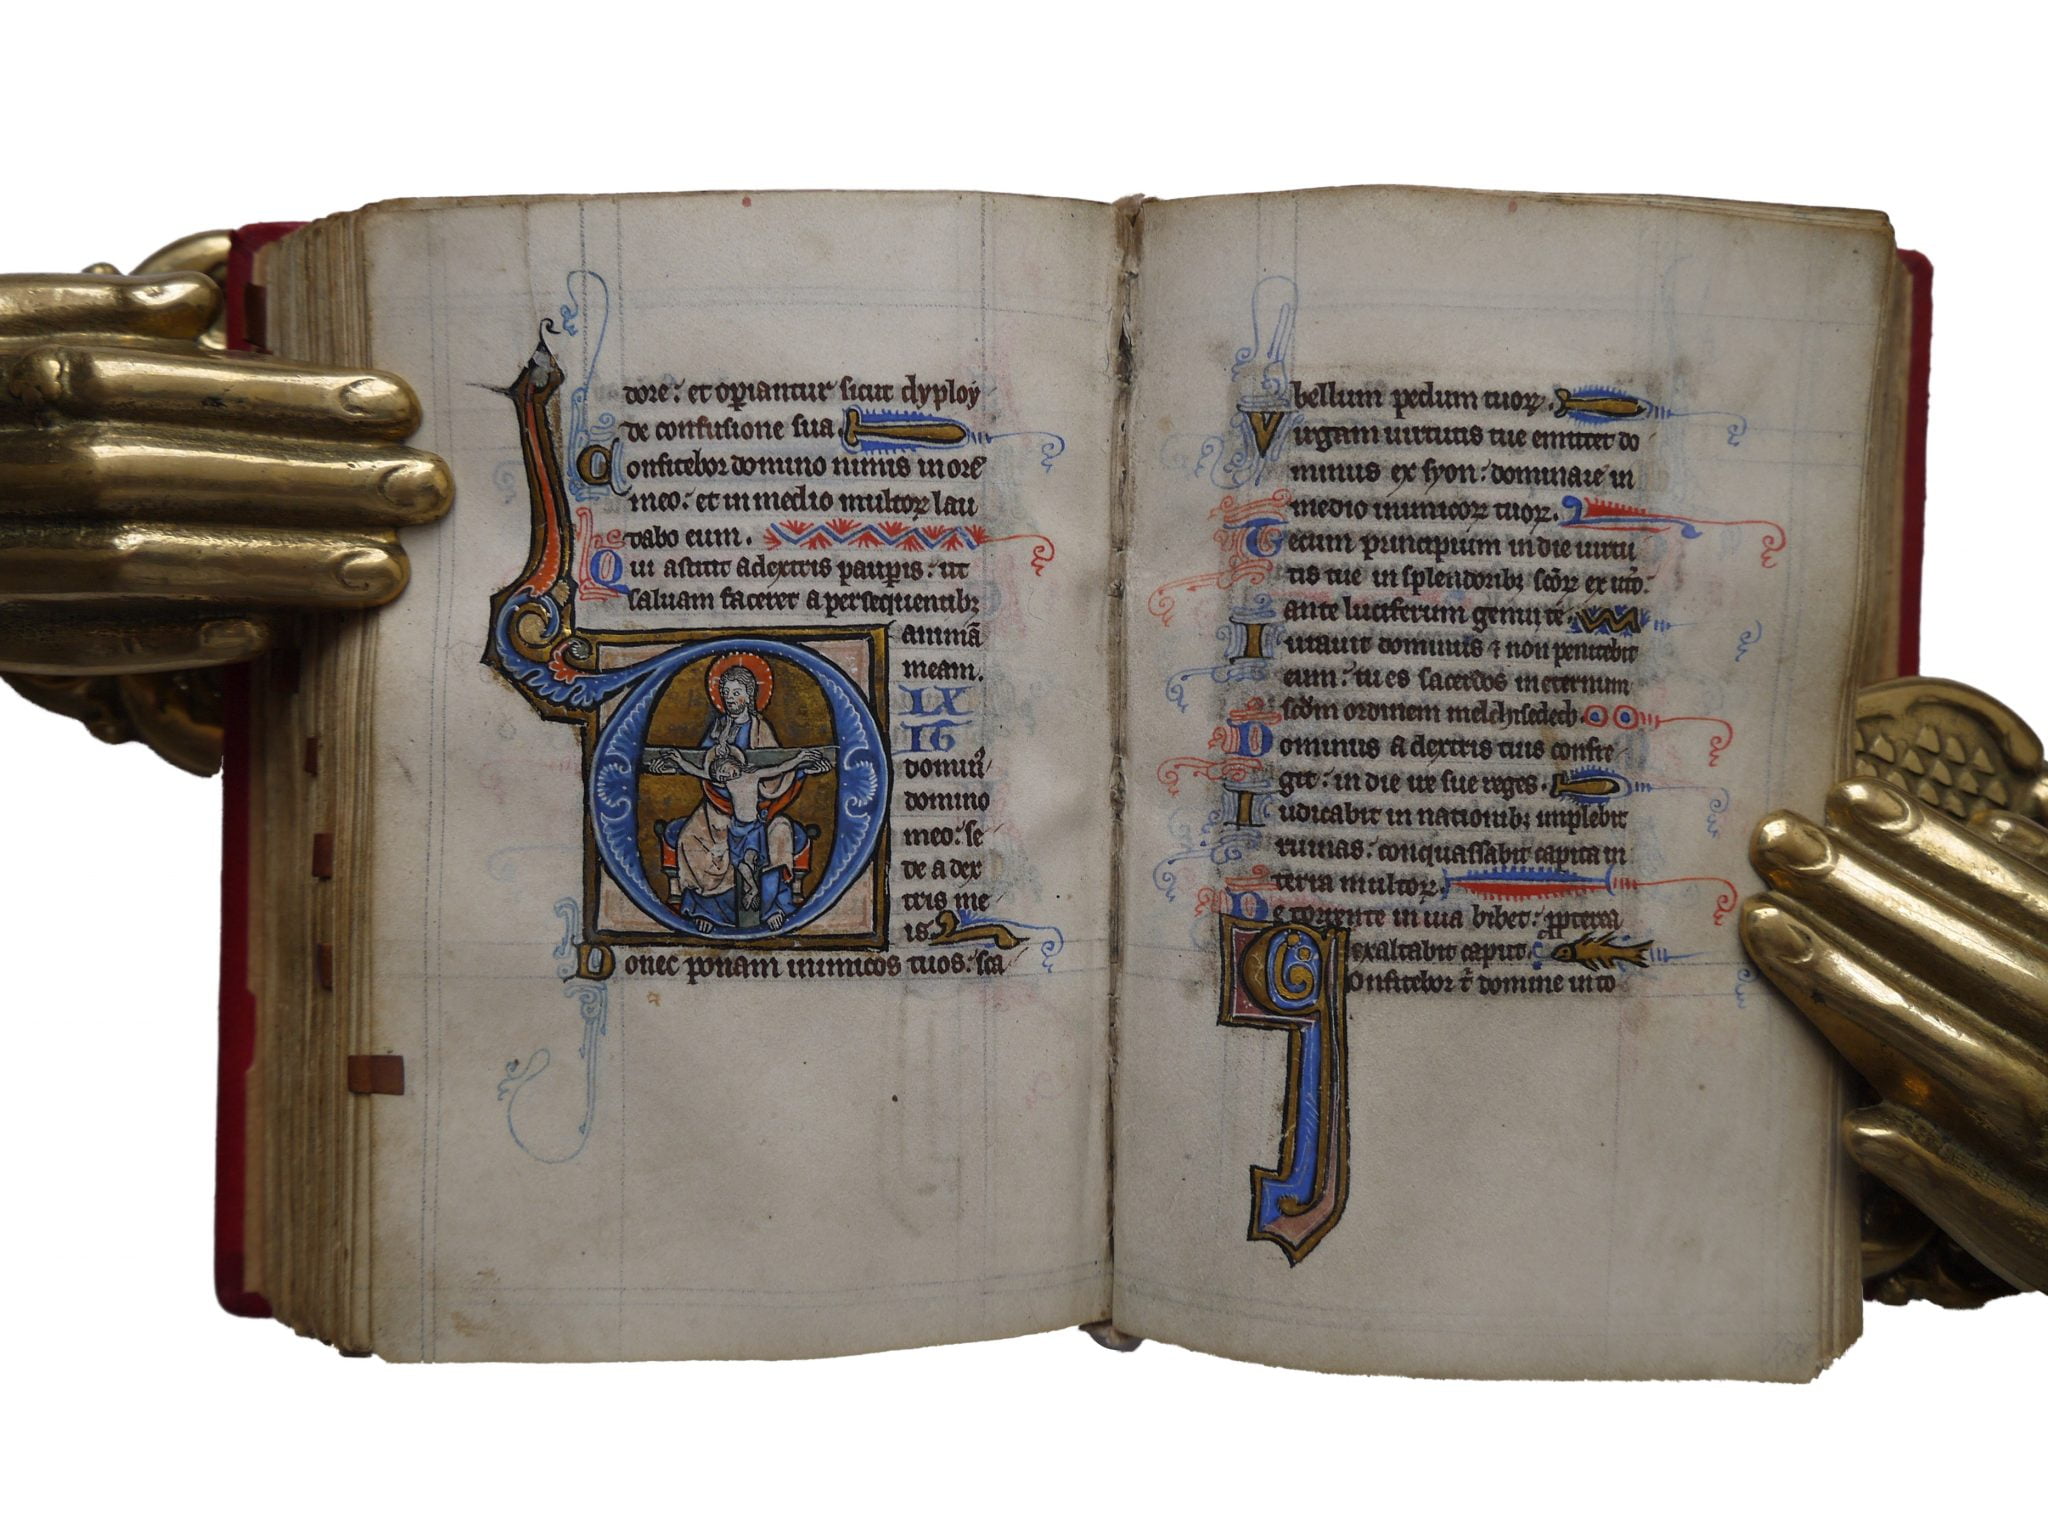 dore: et opiantur sicut dyploy
de confusione sua.
Confitebor domino nimis in ore
meo: et in medio multor lau
dabo eum.
Qui astitit a dextris paupis: ut
saluam faceret a persequentib;
animā
meam.
IX
IT
Domin'
domino
meo: se
de a dex
tris me
is.
Donec ponam inimicos tuos: sca
bellum pedum tuor.
Virgam uirtutis tue emittet do
minus ex syon: dominare in
medio inimicor tuor.
Tecum principium in die uirtu
tis tue in splendorib; scōr ex ut'o:
ante luciferum genui te.
Iurauit dominus ⁊ non penitebit
eum: tu es sacerdos in eternum
scd'm ordinem melchisedech.
Dominus a dextris tuis confre
git: in die ire sue reges.
Iudicabit in nationib; implebit
ruinas: conquassabit capita in
terra multor.
De torrente in uia bibet: ppterea
exaltabit caput.
Confitebor t' domine in to